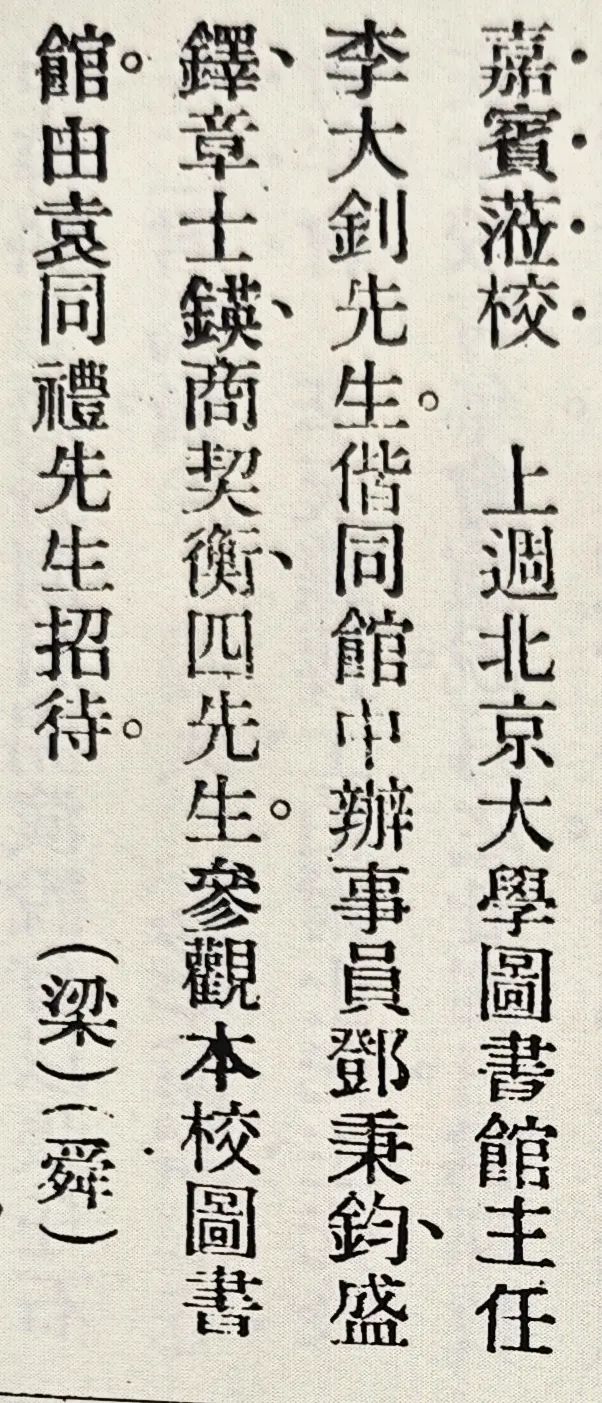 嘉賓蒞校　上週北京大學圖書館主任
李大釗先生。偕同館中辦事員鄧秉鈞、盛
鐸、章士鍈、商契衡、四先生。參觀本校圖書
館。由袁同禮先生招待。　（梁）（舜）